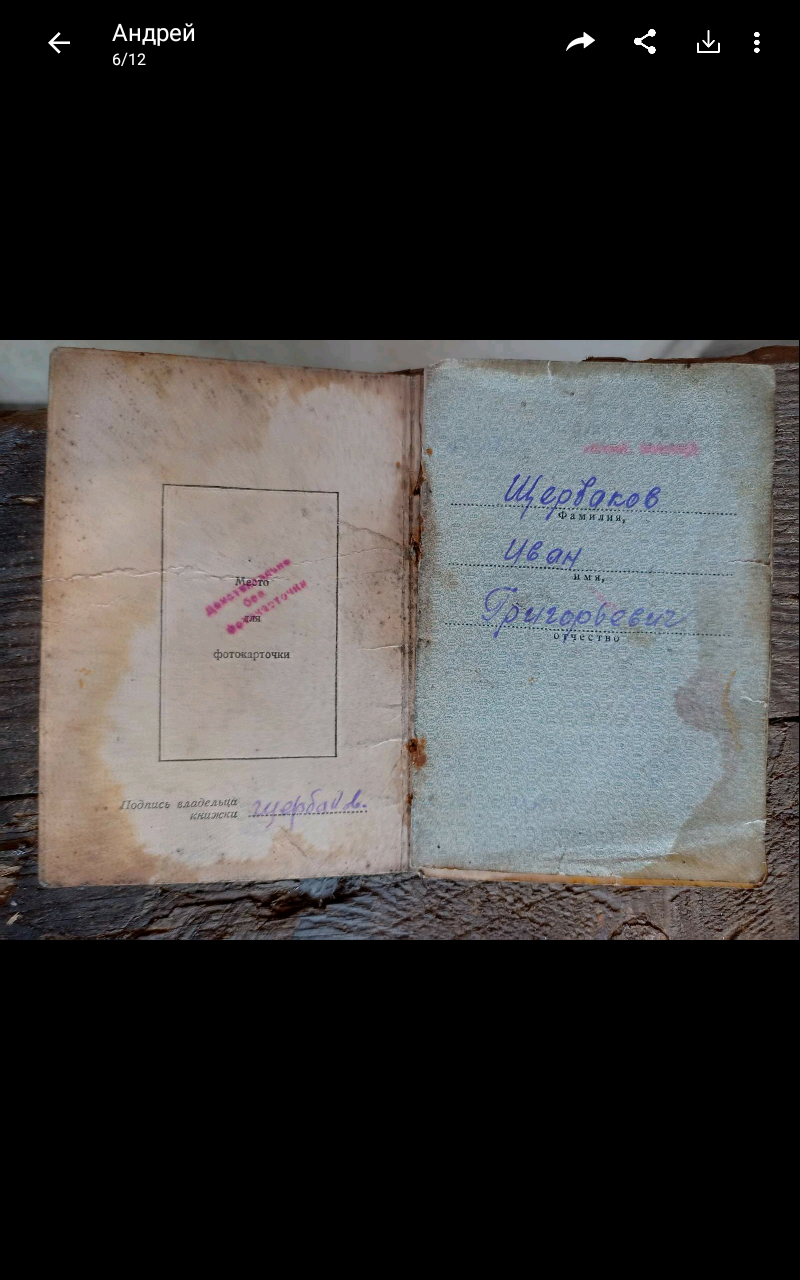 Андрей
6/12
Щербаков
Фамилия,
Иван
имя,
Григорьевич
отчество
Место
для
фотокарточки
Действительно
без
фотокарточки
Подпись владельца
книжки